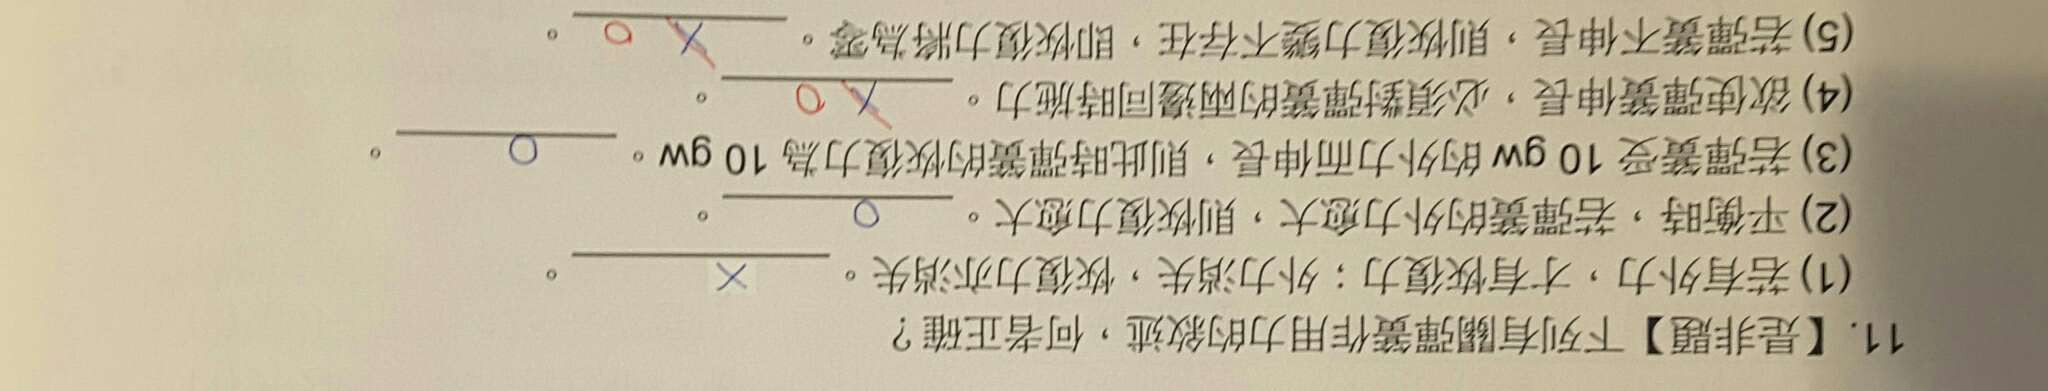 11.【是非題】下列有關彈簧作用力的敘述，何者正確？
(1) 若有外力，才有恢復力；外力消失，恢復力亦消失。 X 。
(2) 平衡時，若彈簧的外力愈大，則恢復力愈大。 O 。
(3) 若彈簧受 10 gw 的外力而伸長，則此時彈簧的恢復力為 10 gw。 O 。
(4) 欲使彈簧伸長，必須對彈簧的兩邊同時施力。 X O 。
(5) 若彈簧不伸長，則恢復力變不存在，即恢復力將為零。 X O 。